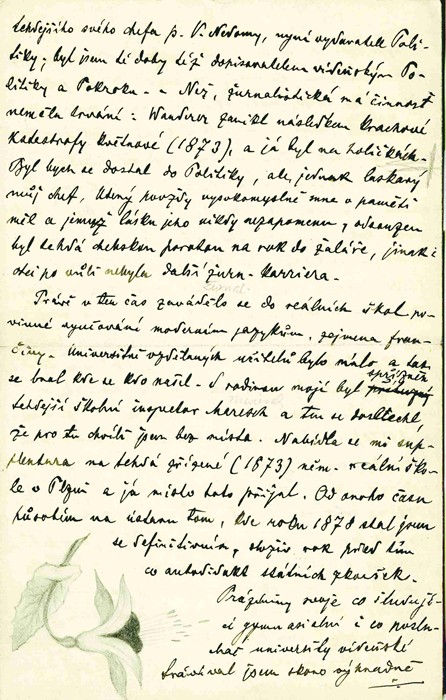 tehdejšího svého chefa p. V. Nedomy, nyní vydavatele Poli-
tiky; byl jsem té doby též dopisovatelem vídeňským Po-
litiky a Pokroku. – Než, žurnalistická má činnost
neměla trvání: Wanderer zanikl následkem krachové
katastrofy květnové (1873), a já byl na holičkách.
Byl bych se dostal do Politiky, ale jednak laskavý
můj chef, který povždy vysokomyslně mne v paměti
měl a jemuž lásku jeho nikdy nezapomenu, odsouzen
byl tehdá chebskou porotou na rok do žaláře, jinak i
otci po vůli nebyla další žurn. karriera.
Právě v ten čas zavádělo se do reálních škol po-
vinné vyučování moderním jazykům, zejmena fran-
činy. Universitně vzdělaných učitelů bylo málo a tak
se bral kde se kdo našel. S rodinou mojí byl spřízněn
tehdejší školní inspector Maresch a ten se doslechl,
že pro tu chvíli jsem bez místa. Nabídla se mi sup-
plentura na tehdá zřízené (1873) něm. reální ško-
le v Plzni a já místo toto přijal. Od onoho času
působím na ústavu tom, kde roku 1878 stal jsem
se definitivním, složiv rok před tím
co autodidakt státních zkoušek.
Prázdniny svoje co studují-
cí gymnasiální i co poslu-
chač university vídeňské
trávíval jsem skoro výhradně